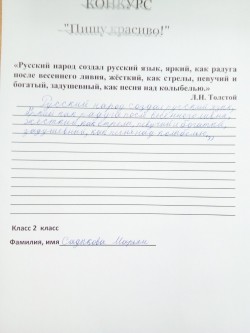 КОНКУРС
"Пишу красиво!"
«Русский народ создал русский язык, яркий, как радуга
после весеннего ливня, жёсткий, как стрелы, певучий и
богатый, задушевный, как песня над колыбелью.»
Л.Н. Толстой
Русский народ создал русский язык,
как радуга после весеннего ливня,
жёсткий как стрелы, певучий и богатый,
задушевный, как песня над
Класс 2 класс
Фамилия, имя Садыкова Марьям